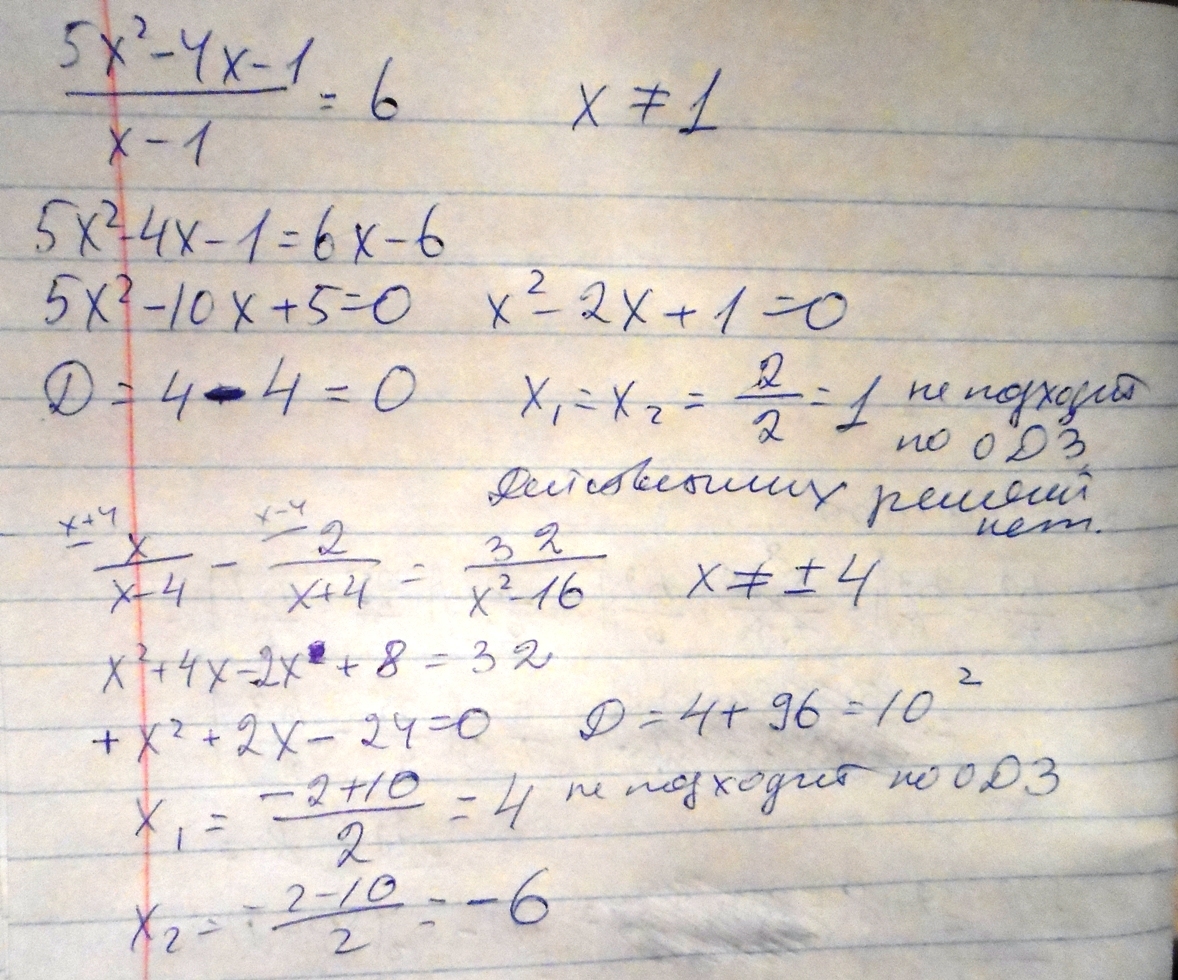 5x²-4x-1 / x-1 = 6 x ≠ 1
5x²-4x-1=6x-6
5x²-10x+5=0 x²-2x+1=0
D = 4-4 = 0 x₁=x₂ = 2/2 = 1 не подходит
по ОДЗ
решений
нет.
x+4 x-4
x / x-4 - 2 / x+4 = 32 / x²-16 x ≠ ±4
x²+4x-2x+8=32
+x²+2x-24=0 D=4+96=10²
x₁ = -2+10 / 2 = 4 не подходит по ОДЗ
x₂ = -2-10 / 2 = -6